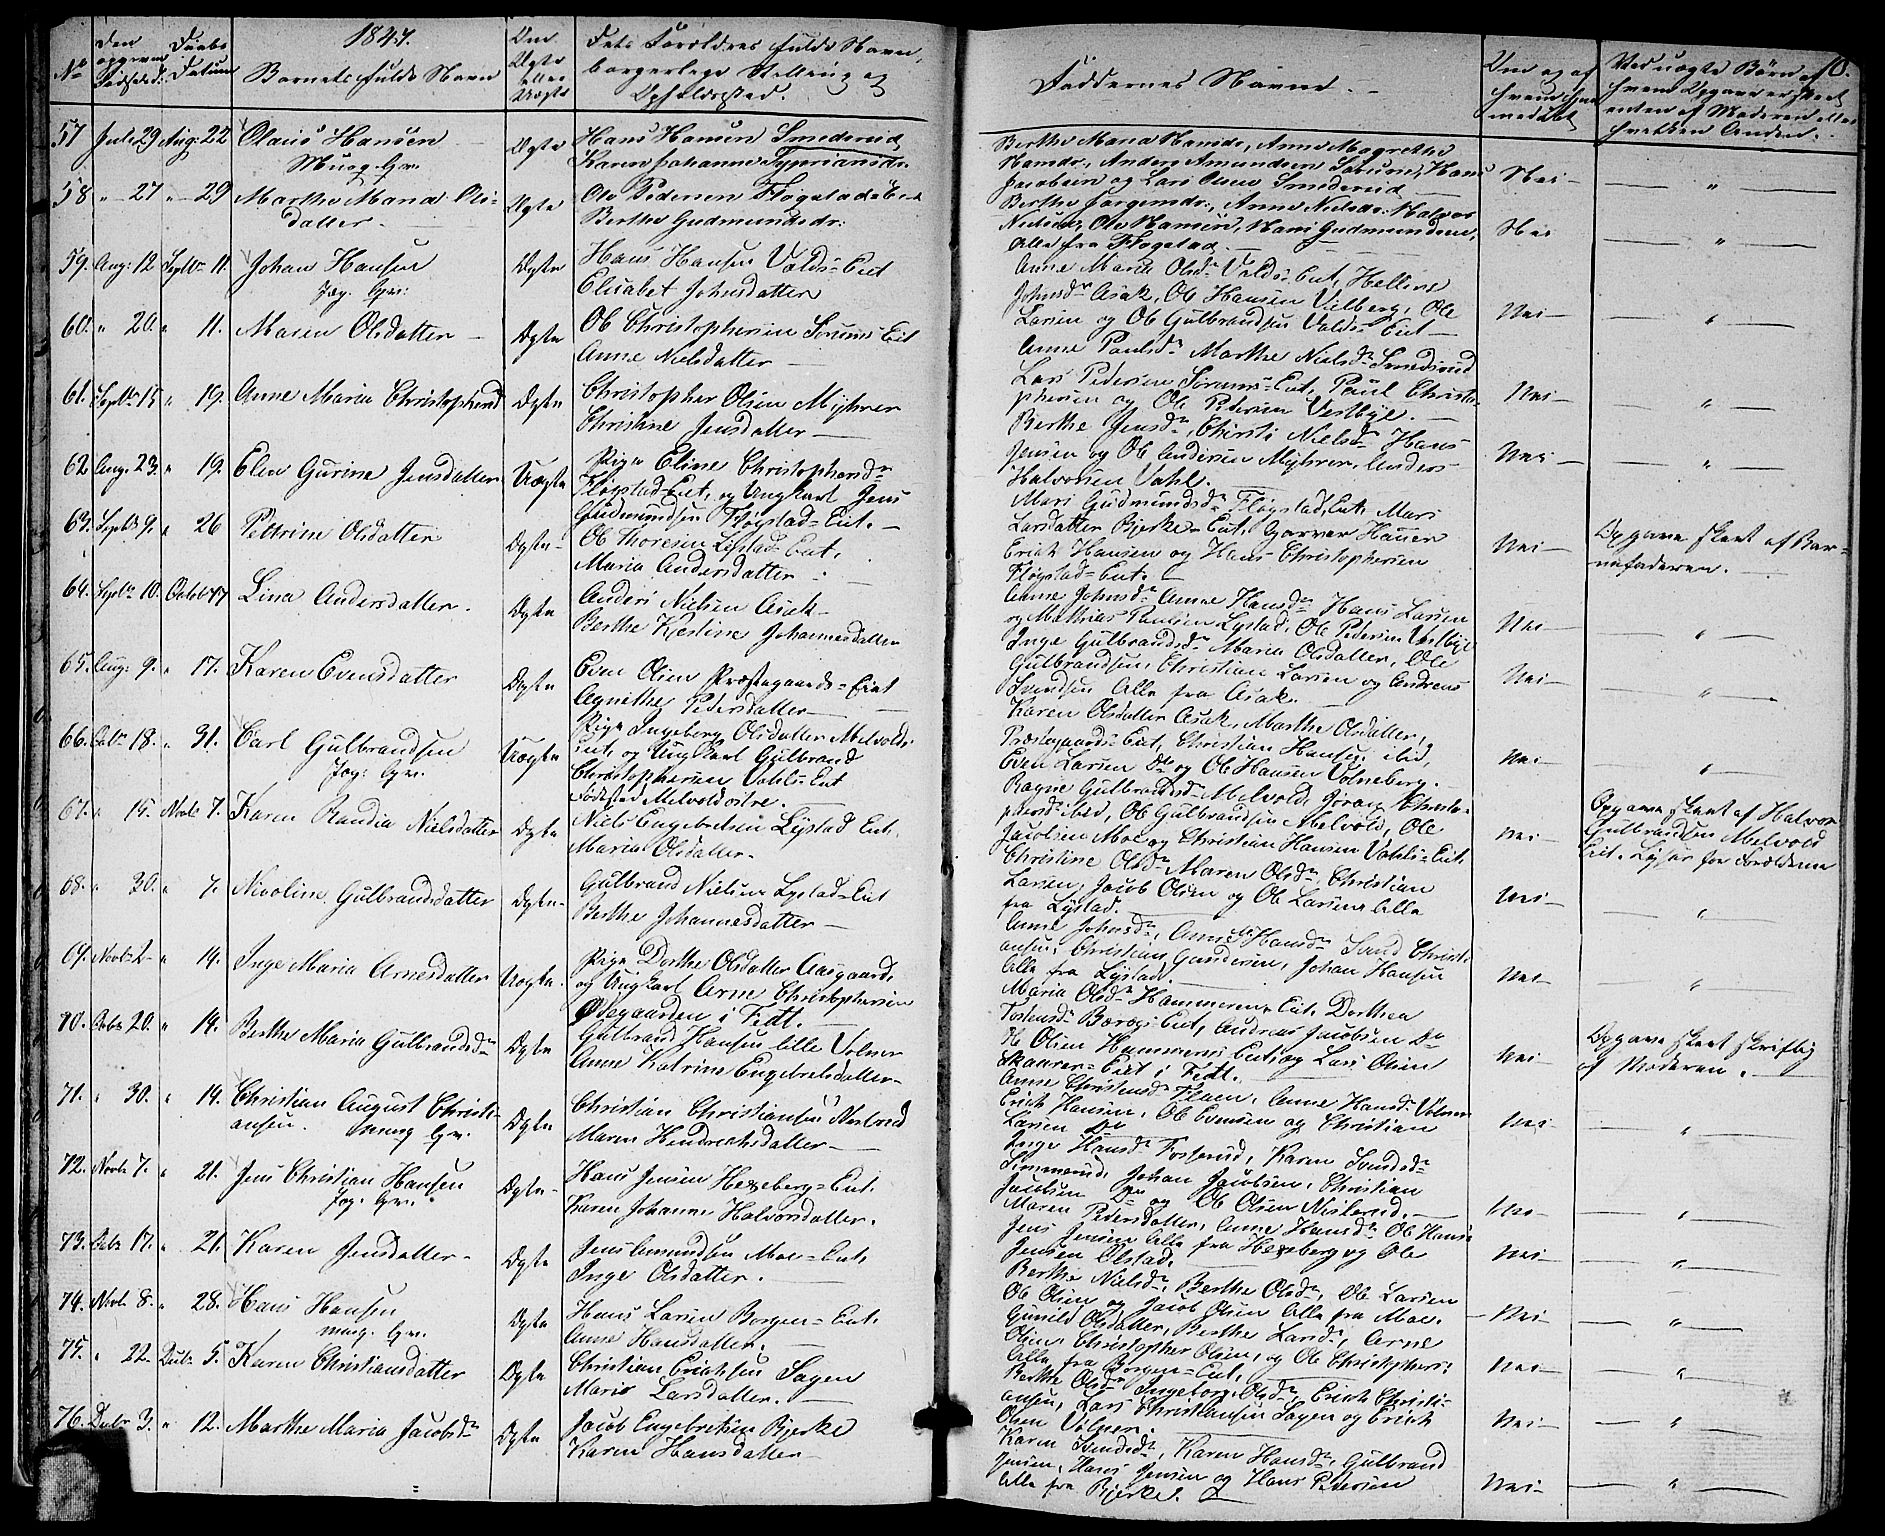 10.
No
Den opgivne Fødselsd:
Daabs Datum
1847.
Barnets fulde Navn
Om Ægte eller Uægte
Dets Forældres fulde Navn, borgerlige Stilling og Opholdssted.
Faddernes Navne. -
Om og af hvem hjemmedøbt
Ved uægte Børn af hvem Opgave er skeet enten af Moderen eller hvilken Anden.
57 Juli 29 Aug: 22 Olaus Hansen Ægte Hans Hansen Smederud
Karen Johanne Cypriansdr.
Berthe Maria Hansdr, Anne Magrethe
Hansdr, Anders Amundsen Sørum, Hans
Jacobsen og Lars Olsen Smederud Nei — "
58 " 27 " 29 Marthe Maria Ols-
datter. Ægte Ole Pedersen Fløgstad Eiet
Berthe Gudmundsdr:
Berthe Jørgensdr:, Anne Nielsdr: Halvor
Nielsen, Ole Hansen, Hans Gudmundsen,
Alle fra Fløgstad. Nei — "
59. Aug: 12 Septbr 11. Johan Hansen Ægte Hans Hansen Valds-Eiet
Elisabet Johnsdatter
Anne Maria Olsdr Valds-Eiet, Helline
Johnsdr Asak, Ole Hansen Vilberg, Ole
Larsen og Ole Gulbrandsen Valds Eiet Nei — "
60. " 20. " 11. Maren Olsdatter Ægte Ole Christophersen Sørums-Eiet
Anne Nielsdatter
Anne Paulsdr Marthe Nielsdr Smedsrud
Lars Pedersen Sørums-Eiet, Paul Christo-
phersen og Ole Pedersen Vestbye. Nei — "
61. Septbr 15 " 19. Anne Maria Christophersd Ægte Christopher Olsen Myhrer
Christine Jensdatter
Berthe Jensdr, Chirsti Nielsdr Hans
Jensen og Ole Andersen Myhrer, Anders
Halvorsen Vahls. Nei — "
62. Aug. 23 " 19. Elen Gurine Jensdatter Uægte Pige Eline Christophersdr
Fløgstad-Eiet, og Ungkarl Jens
Gudmundsen Fløgstad-Eiet.
Mari Gudmundsdr Fløgstad-Eiet Mari
Larsdatter Bjerke-Eiet, Garver Hauer
Erich Hansen og Hans Christophersen
Fløgstad-Eiet. Nei — Opgave skeet af Bar-
nefaderen.
63. Septb 9. " 26 Pettrine Olsdatter Ægte Ole Thoresen Lystad-Eiet.
Maria Andersdatter
Anne Johnsdr Anne Hansdr Hans Larsen
og Mathias Paulsen Lystad, Ole Pedersen Vestbye Nei — "
64. Septbr 10. Octobr 17 Lina Andersdatter. Ægte Anders Nielsen Asak
Berthe Kjerstine Johannesdatter
Inge Gulbrandsdr Maria Olsdatter, Ole
Gulbrandsen, Christian Larsen og Andreas
Svendsen Alle fra Asak. Nei — "
65. Aug: 9. " 17. Karen Evensdatter Ægte Even Olsen Præstegaards-Eiet
Agnethe Pedersdatter
Karen Olsdatter Asak, Marthe Olsdatter,
Præstegaards-Eiet, Christian Hansen ibid,
Even Larsen Do og Ole Hansen Volneberg. Nei — "
66. Octbr 18. " 31. Carl Gulbrandsen Uægte Pige Ingeborg Olsdatter Melvolds-
Eiet, og Ungkarl Gulbrand
Christophersen Vahls-Eiet
Fødested Melvold østre.
Ragne Gulbrandsdr Melvold, Jøran Christo-
phersd ibid, Ole Gulbrandsen Melvold, Ole
Jacobsen Moe og Christian Hansen Vahls-Eiet. Nei — Opgave skeet af Halvor
Gulbrandsen Melvold
Eiet.
67. " 15. Novbr 7. Karen Randia Nielsdatter Ægte Niels Engebretsen Lystad Eiet.
Maria Olsdatter.
Christine Olsdr Maren Olsdr, Christian
Larsen, Jacob Olsen og Ole Larsen Alle
fra Lystad. Nei — "
68. " 20. " 7. Nicoline Gulbrandsdatter Ægte Gulbrand Nielsen Lystad-Eiet
Berthe Johannesdatter
Anne Johnsdr, Anne Hansdr Svend Christi-
ansen, Christian Gundersen, Johan Hansen
Alle fra Lystad. Nei — "
69. Novbr 2 " 14. Inge Maria Arnesdatter Uægte. Pige Dorthe Olsdatter Aasgaard,
og Ungkarl Arne Christophersen
Ødegaarden i Fedt.
Maria Olsdr Hammeren Eiet, Dorthea
Tostensdr Eiet, Andreas Jacobsen Do
Ole Olsen Hammerens Eiet og Lars Olsen
Skaaren-Eiet i Fedt. Nei — Opgave skeet skriftlig
af Moderen.
70. Octbr 20. " 14. Berthe Maria Gulbrandsdr Ægte Gulbrand Hansen lille Volner
Anne Katrine Engebretsdatter
Anne Christensdr Flaen, Anne Hansdr Volner
Erich Hansen, Ole Evensen og Christian
Larsen Do Nei — "
71. " 30. " 14. Christian August Christi-
ansen. Ægte Christian Christiansen Nesterud
Maren Hendrichsdatter
Inge Hansdr Fosserud, Karen Svendsdr
Simmerud, Johan Jacobsen, Christian
Jacobsen Do og Ole Olsen Nisterud. Nei — "
72. Novbr 7. " 21. Jens Christian Hansen Ægte Hans Jensen Hexeberg-Eiet.
Karen Johanne Halvorsdatter.
Maren Pedersdatter, Anne Hansdr Ole Hansen
Jens Jensen Alle fra Hexeberg og Ole
Jensen Ølstad. Nei — "
73. Octbr 17. " 21. Karen Jensdatter Ægte Jens Amundsen Moe-Eiet.
Inge Olsdatter.
Berthe Nielsdr, Berthe Olsdr, Ole Larsen
Ole Olsen og Jacob Olsen Alle fra Moe. Nei — "
74. Novbr 8. " 28. Hans Hansen Ægte Hans Larsen Borgen-Eiet.
Anne Hansdatter.
Gunild Olsdatter, Berthe Larsdr, Arne
Olsen, Christopher Olsen, og Ole Christophers:
Alle fra Borgen-Eiet. Nei — "
75. " 22. Decbr 5. Karen Christiansdatter Ægte Christian Erichsen Sagen
Maria Larsdatter.
Berthe Olsdr, Ingeborg Olsdr, Erich Christi-
ansen, Lars Christiansen Sagen og Erich
Olsen Volner. Nei — "
76. Decbr 3. " 12. Marthe Maria Jacobsdr Ægte Jacob Engebretsen Bjerke
Karen Hansdatter
Karen Svendsdr, Karen Hansdr, Gulbrand
Jensen, Hans Jensen og Hans Pedersen
Alle fra Bjerke. Nei — "